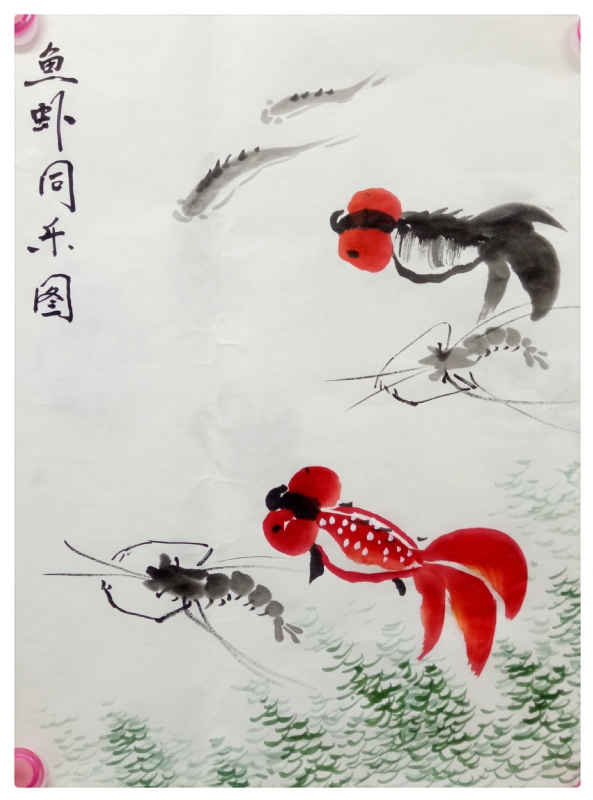 鱼虾同乐图